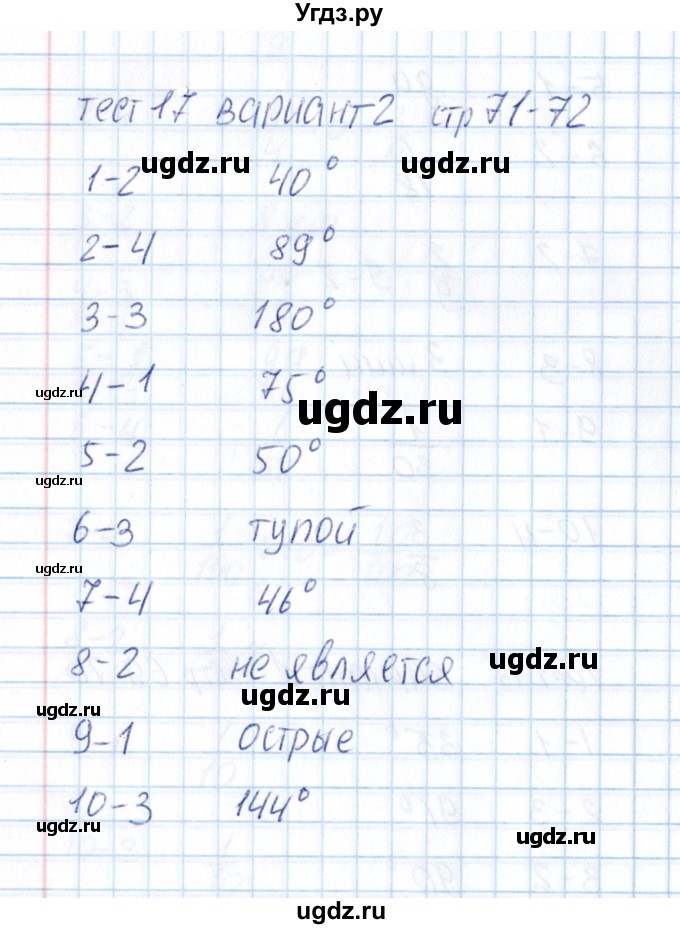 Угдз.ру
тест 17 вариант 2 стр 71-72
ugdz.ru ugdz.ru
1-2 40°
2-4 89°
3-3 180°
ugdz.ru 4-1 75°
ugdz.ru
5-2 50°
ugdz.ru
6-3 тупой
ugdz.ru
7-4 46°
8-2 не является ugdz.ru
ugdz.ru
ugdz.ru
9-1 острые
10-3 144°
ugdz.ru
ugdz.ru
ugdz.ru